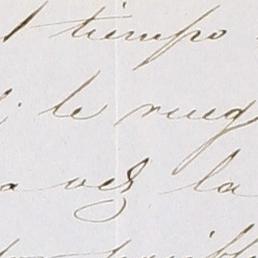 l tiempo
le rueg
a vez la